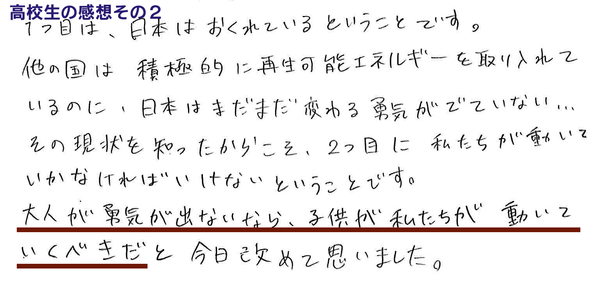 高校生の感想その２
1つ目は、日本はおくれているということです。
他の国は積極的に再生可能エネルギーを取り入れて
いるのに、日本はまだまだ変わる勇気がでていない…
その現状を知ったからこそ、2つ目に私たちが動いて
いかなければいけないということです。
大人が勇気が出ないなら、子供が私たちが動いて
いくべきだと今日改めて思いました。